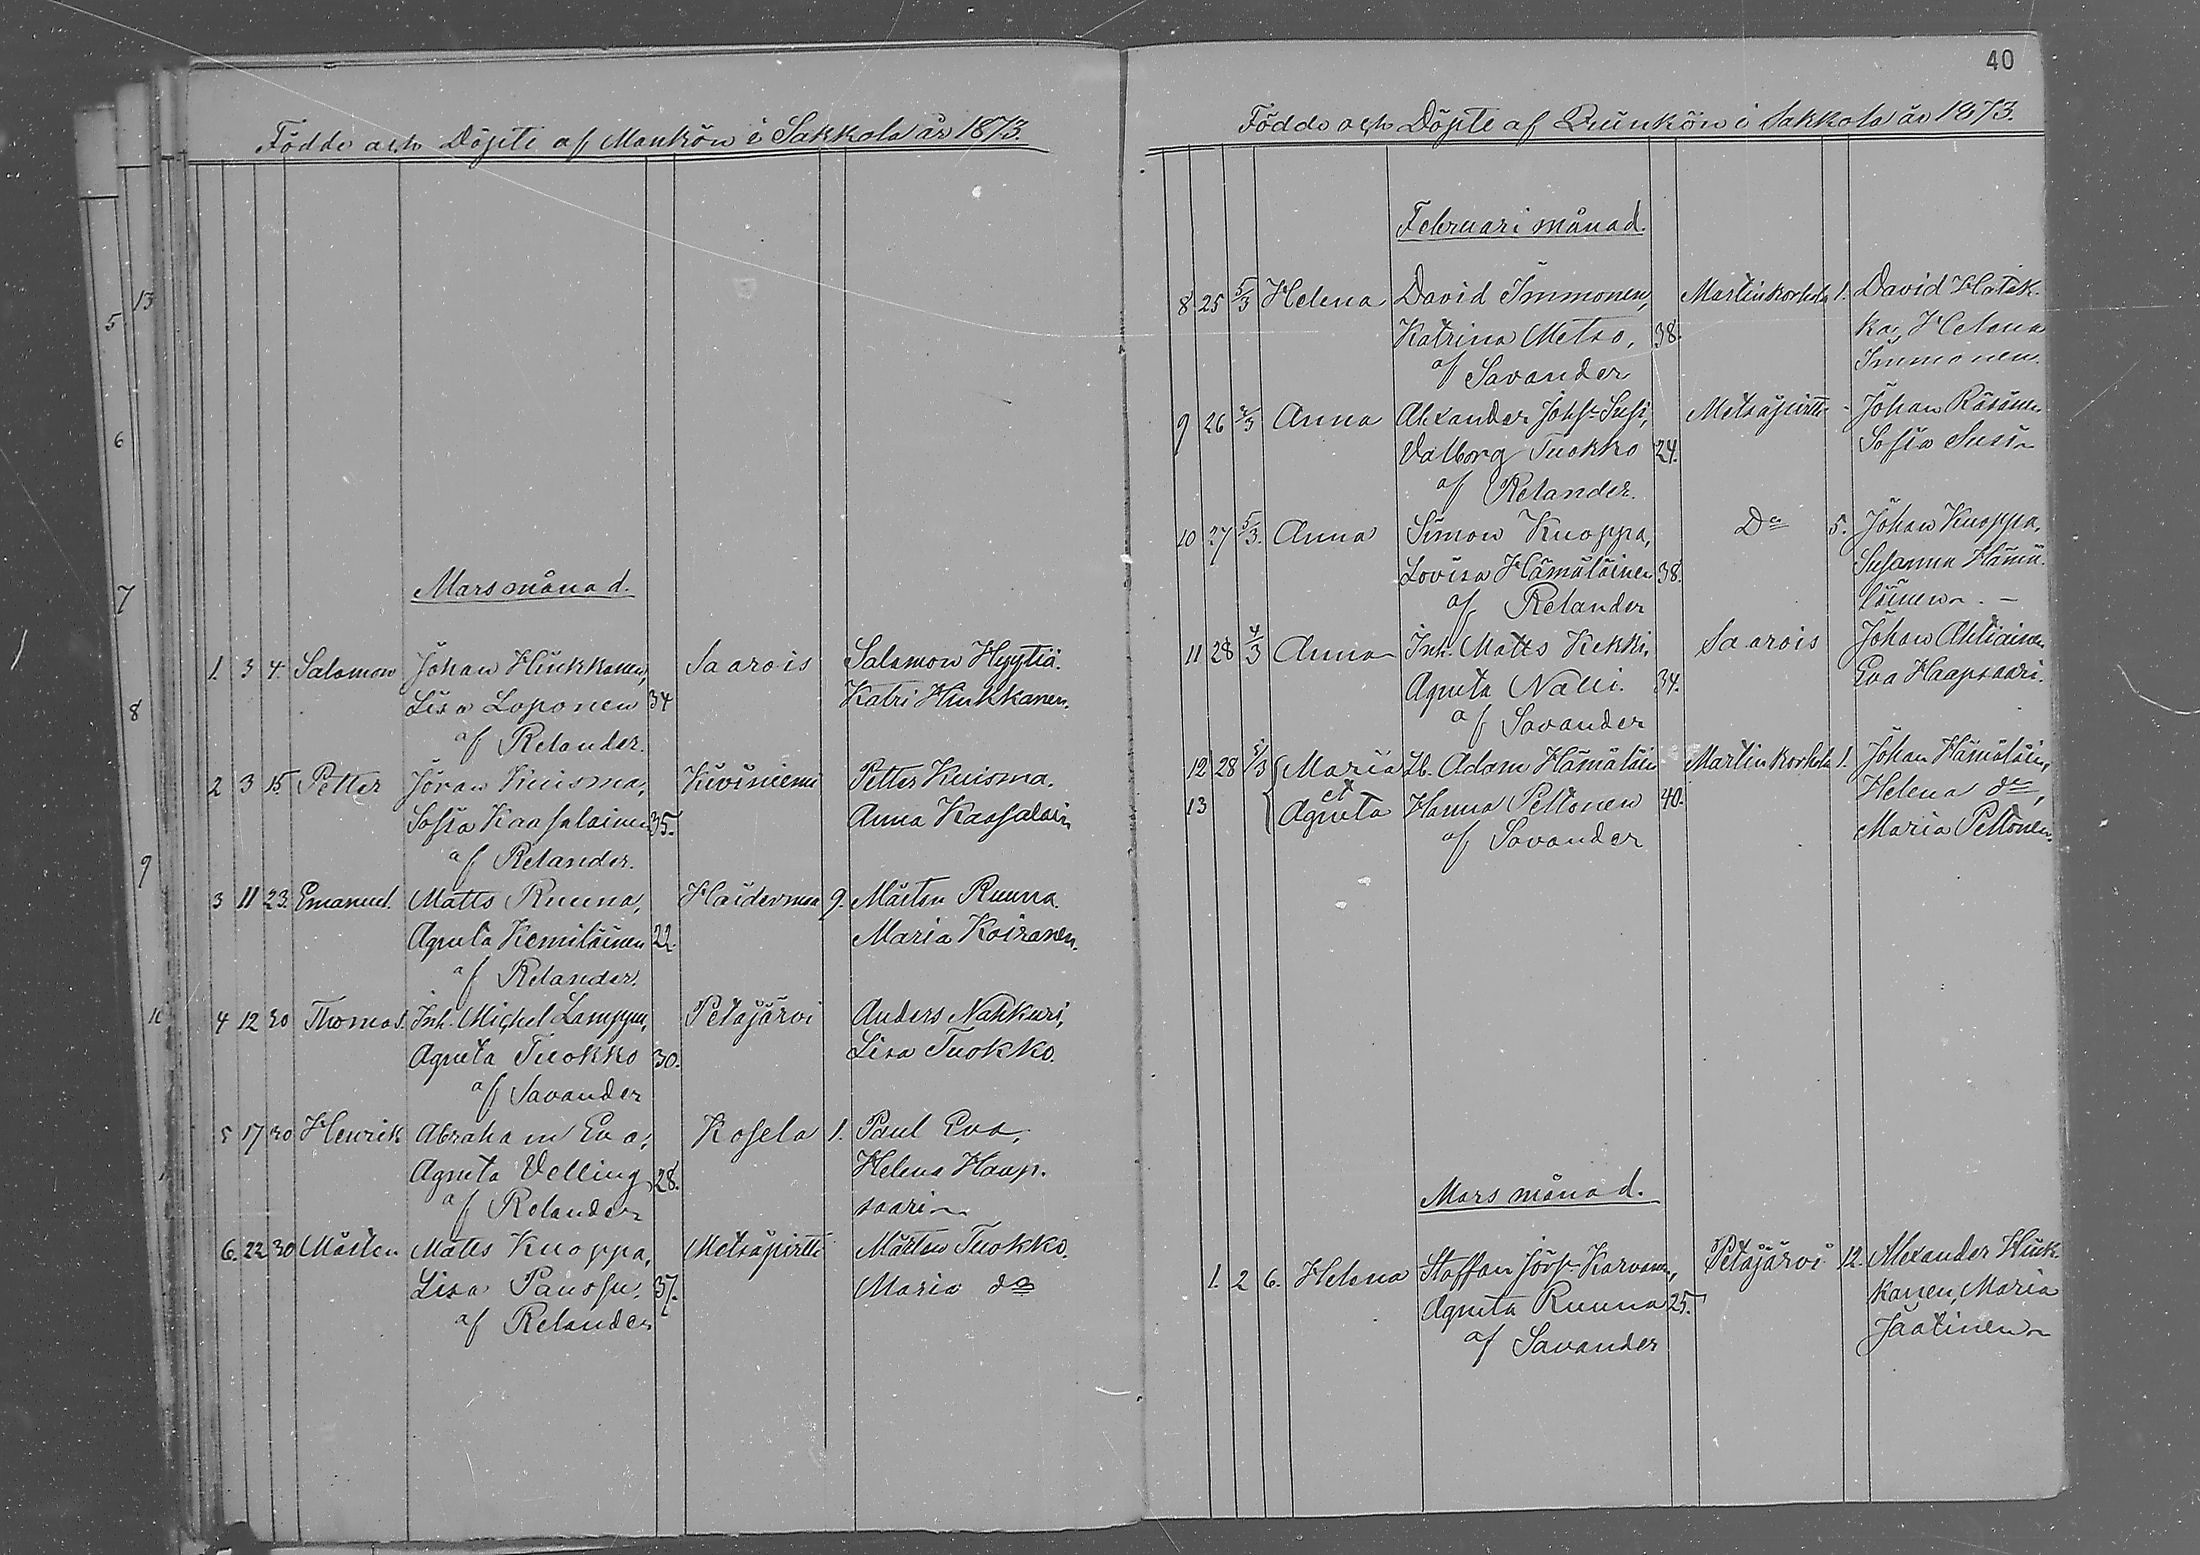 Födde och Döpte af Mankön i Sakkola år 1873.
Mars månad.
1. 3 4. Salomon Johan Hinkkanen, Saarois Salomon Hyytiä.
Lisa Loponen 34 Katri Hinkkanen.
af Relander.
2 3 15 Petter Jöran Kuisma, Kiviniemi Petter Kuisma.
Sofia Kaasalainen 35. Anna Kaasalain
af Relander.
3 11 23. Emanuel. Matts Ruuna, Haidermaa 9. Mårten Ruuna.
Agneta Kemiläinen 22. Maria Koiranen.
af Relander.
4 12 30 Thomas. Inh. Michel Lamppu, Petäjärvi Anders Nahkuri,
Agneta Tuokko 30. Lisa Tuokko.
af Savander
5 17 30 Henrik Abraham Eva, Kosela 1. Paul Eva,
Agneta Velling 28. Helena Haap-
af Relander saari
6. 22 30 Mårten Matts Knoppa, Metsäpirtti Mårten Tuokko.
Lisa Paussu. 37. Maria do
af Relander
5
13
6
7
8
9
10
40
Födde och Döpte af Qvinkön i Sakkola år 1873.
Februari månad.
8 25 5/3 Helena David Immonen, Martinkorhola 1. David Hatak-
Katrina Metso, 38. ka, Helena
af Savander Immonen.
9 26 4/3 Anna Alexander Johs. Susi, Metsäpirtti - Johan Räsänen
Valborg Tuokko 24. Sofia Susi
af Relander.
10 27 5/3. Anna Simon Knoppa, Do 5. Johan Knoppa,
Lovisa Hämäläinen 38. Susanna Hämä-
af Relander läinen. -
11 28 4/3 Anna Inh. Matts Kekki, Saarois Johan Ahtiainen
Agneta Nalli. 34. Eva Haapsaari.
af Savander
12 28 5/3 Maria Lb. Adam Hämäläin Martinkorhola 1. Johan Hämäläin,
13 et Agneta Hanna Peltonen 40. Helena do,
af Savander Maria Peltonen.
Mars månad.
1. 2 6. Helena Staffan Jörs. Karvanen, Petäjärvi 12. Alexander Hink-
Agneta Ruuna 25. kanen, Maria
af Savander Jaatinen